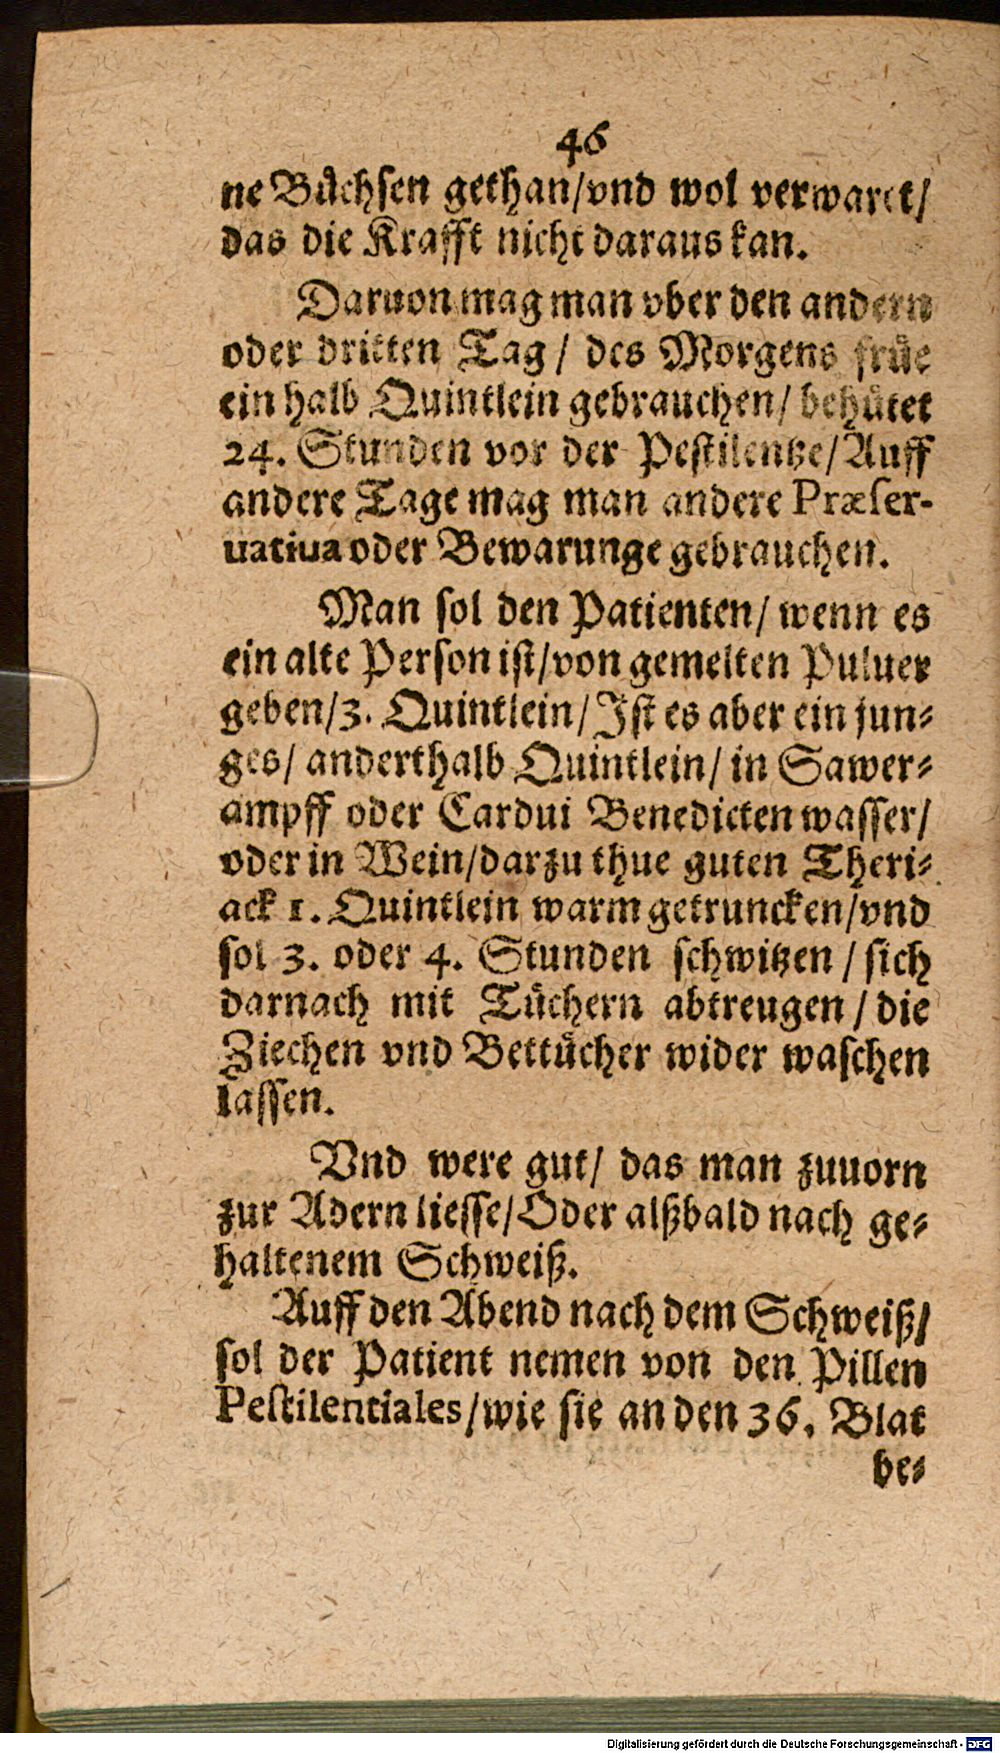 46
ne Buͤchsen gethan/vnd wol verwaret/
das die Krafft nicht daraus kan.
Daruon mag man vber den andern
oder dritten Tag / des Morgens fruͤe
ein halb Quintlein gebrauchen/ behuͤtet
24. Stunden vor der Pestilentze/Auff
andere Tage mag man andere Præser-
uatiua oder Bewarunge gebrauchen.
Man sol den Patienten/ wenn es
ein alte Person ist/von gemelten Puluer
geben/3. Quintlein/ Ist es aber ein jun-
ges/ anderthalb Quintlein/ in Sawer-
ampff oder Cardui Benedicten wasser/
oder in Wein/darzu thue guten Theri-
ack 1. Quintlein warm getruncken/vnd
sol 3. oder 4. Stunden schwitzen / sich
darnach mit Tuͤchern abtreugen / die
Ziechen vnd Bettuͤcher wider waschen
lassen.
Vnd were gut/ das man zuuorn
zur Adern liesse/Oder alßbald nach ge-
haltenem Schweiß.
Auff den Abend nach dem Schweiß/
sol der Patient nemen von den Pillen
Pestilentiales/wie sie an den 36. Blat
be-
Digitalisierung gefördert durch die Deutsche Forschungsgemeinschaft - DFG